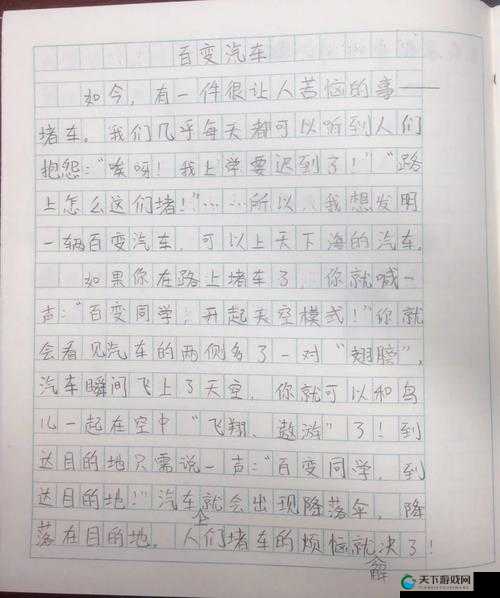 百变汽车
如今，有一件很让人苦恼的事——
堵车。我们几乎每天都可以听到人们
抱怨：“唉呀！我上学要迟到了！”“路
上怎么这们堵！”……所以，我想发明
一辆百变汽车，可以上天下海的汽车。
如果你在路上堵车了，你就喊一
声：“百变同学，开起天空模式！”你就
会看见汽车的两侧多了一对“翅膀”，
汽车瞬间飞上了天空，你就可以和鸟
儿一起在空中“飞翔、遨游”了！到
达目的地只需说一声：“百变同学，到
达目的地！”汽车就会出现降落伞，降
落在目的地。人们堵车的烦恼就解决了！
天下游戏网